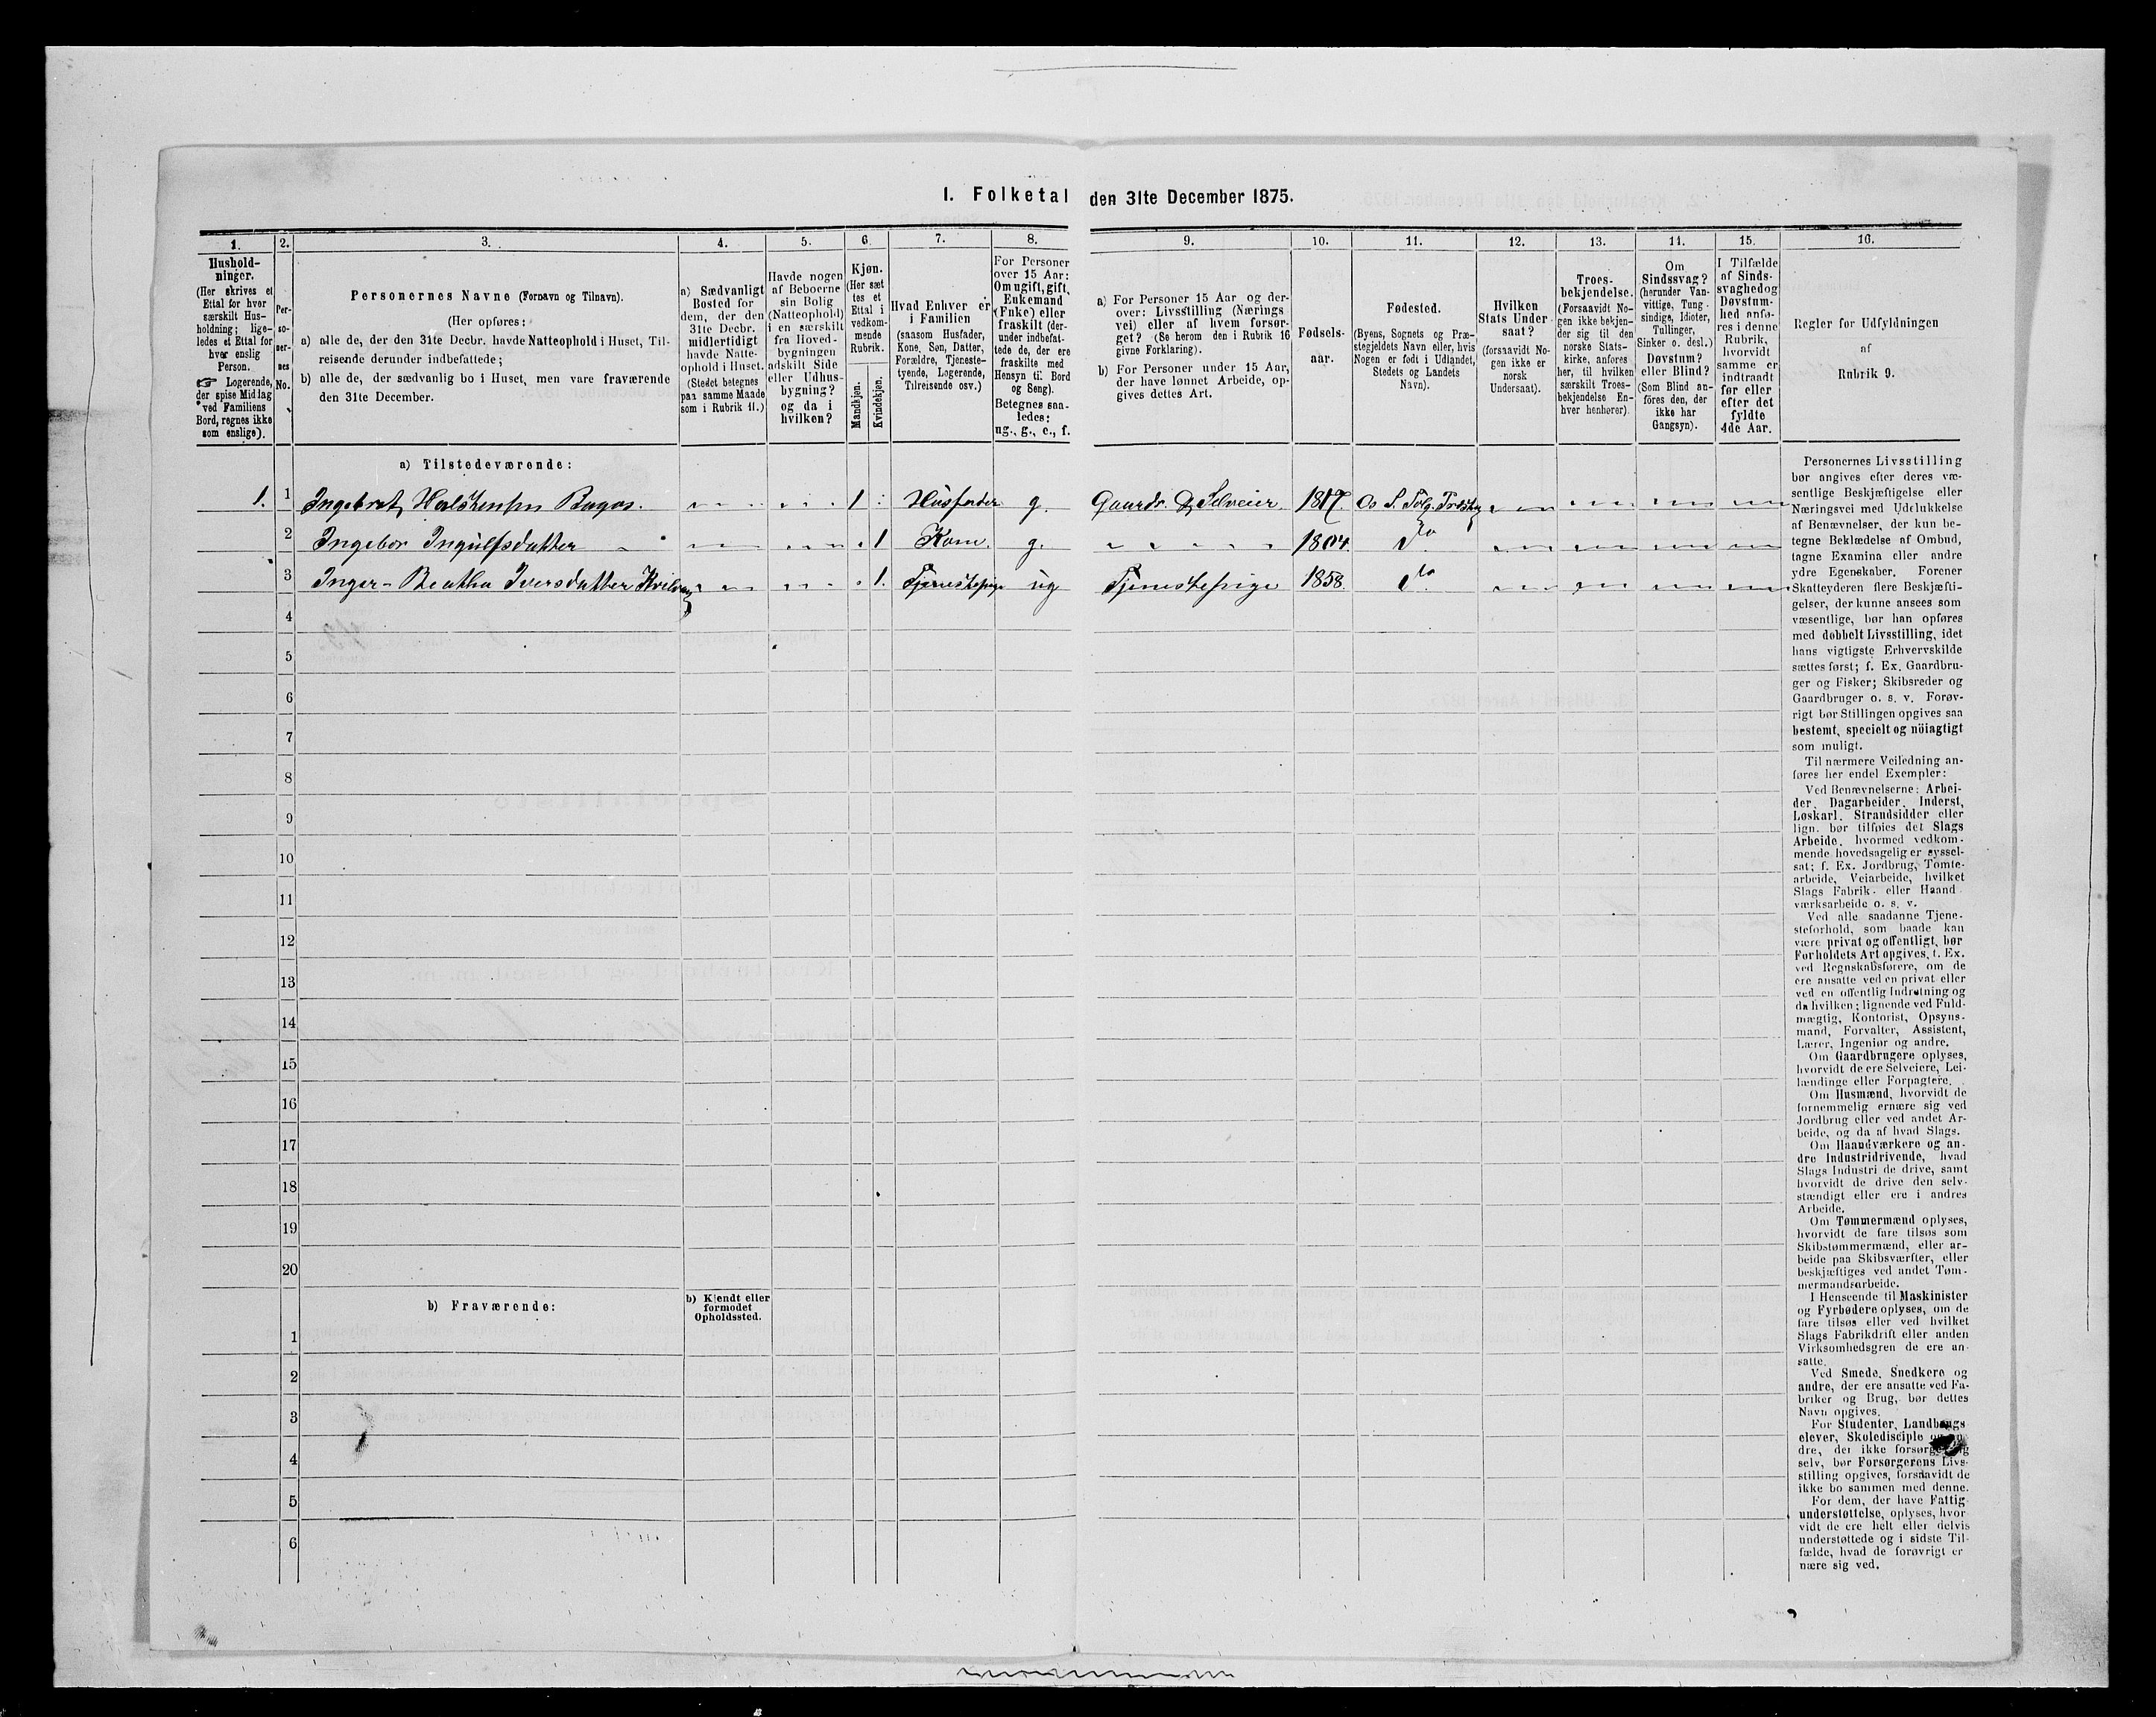 1. Folketal den 31te December 1875.
1.
2.
3.
4.
5.
6.
7.
8.
9.
10.
11.
12.
13.
14.
15.
16.
Hushold-
ninger.
(Her skrives et
Ettal for hver
særskilt Hus-
holdning; lige-
ledes et Ettal for
hver enslig
Person.
☞ Logerende,
der spise Middag
ved Familiens
Bord, regnes ikke
som enslige).
Per-
so-
ner-
nes
No.
Personernes Navne (Fornavn og Tilnavn).
(Her opføres:
a) alle de, der den 31te Decbr. havde Natteophold i Huset, Til-
reisende derunder indbefattede;
b) alle de, der sædvanlig bo i Huset, men vare fraværende
den 31te December.
a) Sædvanligt
Bosted for
dem, der den
31te Decbr.
midlertidigt
havde Natte-
ophold i Huset.
(Stedet betegnes
paa samme Maade
som i Rubrik 11.)
Havde nogen
af Beboerne
sin Bolig
(Natteophold)
i en særskilt
fra Hoved-
bygningen
adskilt Side
eller Udhus-
bygning?
og da i
hvilken?
Kjøn.
(Her sæt
tes et
Ettal i
vedkom-
mende
Rubrik.
Mandkjøn.
Kvindekjøn.
Hvad Enhver er
i Familien
(saasom Husfader,
Kone, Søn, Datter,
Forældre, Tjeneste-
tyende, Logerende,
Tilreisende osv.)
For Personer
over 15 Aar:
Om ugift, gift,
Enkemand
(Enke) eller
fraskilt (der-
under indbefat-
tede de, der ere
fraskilte med
Hensyn til Bord
og Seng).
Betegnes saa-
ledes:
ug., g., e., f.
a) For Personer 15 Aar og der-
over: Livsstilling (Nærings
vei) eller af hvem forsør-
get? (Se herom den i Rubrik 16
givne Forklaring).
b) For Personer under 15 Aar,
der have lønnet Arbeide, op-
gives dettes Art.
Fødsels-
aar.
Fødested.
(Byens, Sognets og Præ-
stegjeldets Navn eller, hvis
Nogen er født i Udlandet,
Stedets og Landets
Navn).
Hvilken
Stats Under
saat?
(forsaavidt No-
gen ikke er
norsk
Undersaat).
Troes-
bekjendelse.
(Forsaavidt No-
gen ikke bekjen-
der sig til den
norske Stats-
kirke, anføres
her, til hvilken
særskilt Troes-
bekjendelse En-
hver henhører).
Om
Sindssvag?
(herunder Van-
vittige, Tung-
sindige, Idioter,
Tullinger,
Sinker o. desl.)
Døvstum?
eller Blind?
(Som Blind an-
føres den, der
ikke har
Gangsyn).
I Tilfælde
af Sinds-
svaghed og
Døvstum-
hed anfø-
res i denne
Rubrik,
hvorvidt
samme er
indtraadt
før eller
efter det
fyldte
4de Aar.
Regler for Udfyldningen
af
Rubrik 9.
a) Tilstedeværende:
1. 1 Ingebret Halstensen Bugaas. 1 Husfader g. Gaardr. & Selveier 1817.
2 Ingebor Ingulfsdatter 1 Kone. g. 1804. Do
3 Inger-Beatha Iversdatter 1. Tjenestepige ug Tjenestepige 1858. Do
4
5
6
7
8
9
10
11
12
13
14
15
16
17
18
19
20
b) Fraværende:
b) Kjendt eller
formodet
Opholdssted.
1
2
3
4
5
6
Personernes Livsstilling
bør angives efter deres væ-
sentlige Beskjæftigelse eller
Næringsvei med Udelukkelse
af Benævnelser, der kun be-
tegne Beklædelse af Ombud,
tagne Examina eller andre
ydre Egenskaber. Forener
Skatteyderen flere Beskjæfti-
gelser, der kunne ansees som
væsentlige, bør han opføres
med dobbelt Livsstilling, idet
hans vigtigste Erhvervskilde
sættes først; f. Ex. Gaardbru-
ger og Fisker; Skibsreder og
Gaardbruger o. s. v. Forøv-
rigt bør Stillingen opgives saa
bestemt, specielt og nöiagtigt
som muligt.
Til nærmere Veiledning an-
føres her endel Exempler:
Ved Benævnelserne: Arbei-
der, Dagarbeider, Inderst,
Løskarl, Strandsidder eller
lign. bør tilføies det Slags
Arbeide, hvormed vedkom-
mende hovedsagelig er syssel-
sat; f. Ex. Jordbrug, Tomte-
arbeide, Veiarbeide, hvilket
Slags Fabrik- eller Haand-
værksarbeide o. s. v.
Ved alle saadanne Tjene-
steforhold, som baade kan
være privat og offentligt, bør
Forholdets Art opgives, f. Ex.
ved Regnskabsførere, om de
ere ansatte ved en privat eller
ved en offentlig Indretning og
da hvilken; lignende ved Fuld-
mægtig, Kontorist, Opsyns-
mand, Forvalter, Assistent,
Lærer, Ingeniør og andre.
Om Gaardbrugere oplyses,
hvorvidt de ere Selveiere, Lei-
lændinge eller Forpagtere.
Om Husmænd, hvorvidt de
fornemmelig ernære sig ved
Jordbrug eller ved andet Ar-
beide, og da af hvad Slags.
Om Haandværkere og an-
dre Industridrivende, hvad
Slags Industri de drive, samt
hvorvidt de drive den selv-
stændigt eller ere i andres
Arbeide.
Om Tømmermænd oplyses,
hvorvidt de fare tilsøs som
Skibstømmermænd, eller ar-
beide paa Skibsværfter, eller
beskjæftiges ved andet Tøm-
mermandsarbeide.
I Henseende til Maskinister
og Fyrbødere oplyses, om de
fare tilsøs eller ved hvilket
Slags Fabrikdrift eller anden
Virksomhedsgren de ere an-
satte.
Ved Smede, Snedkere og
andre, der ere ansatte ved Fa-
briker og Brug, bør dettes
Navn opgives.
For Studenter, Landbrugs
elever, Skoledisciple og an-
dre, der ikke forsørge sig
selv, bør Forsørgerens Livs-
stilling opgives, forsaavidt de
ikke bo sammen med denne.
For dem, der have Fattig-
understøttelse, oplyses, hvor
vidt de ere helt eller delvis
understøttede og i sidste Til-
fælde, hvad de forøvrigt er
nære sig ved.